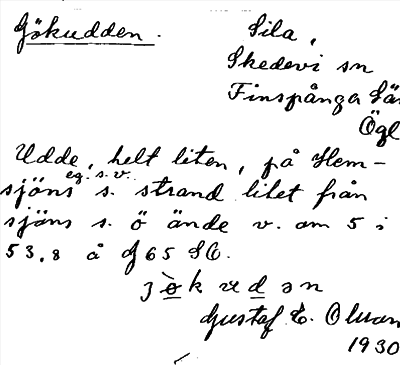 Gökudden.
Sila,
Skedevi sn
Finspånga Lä
Ögl
Udde, helt liten, på Hem-
sjöns s. strand litet från
eg. s.v.
sjöns s. ö ände v. om 5 i
53,8 å J65 SO.
jökudən
Gustaf E. Olson
1930